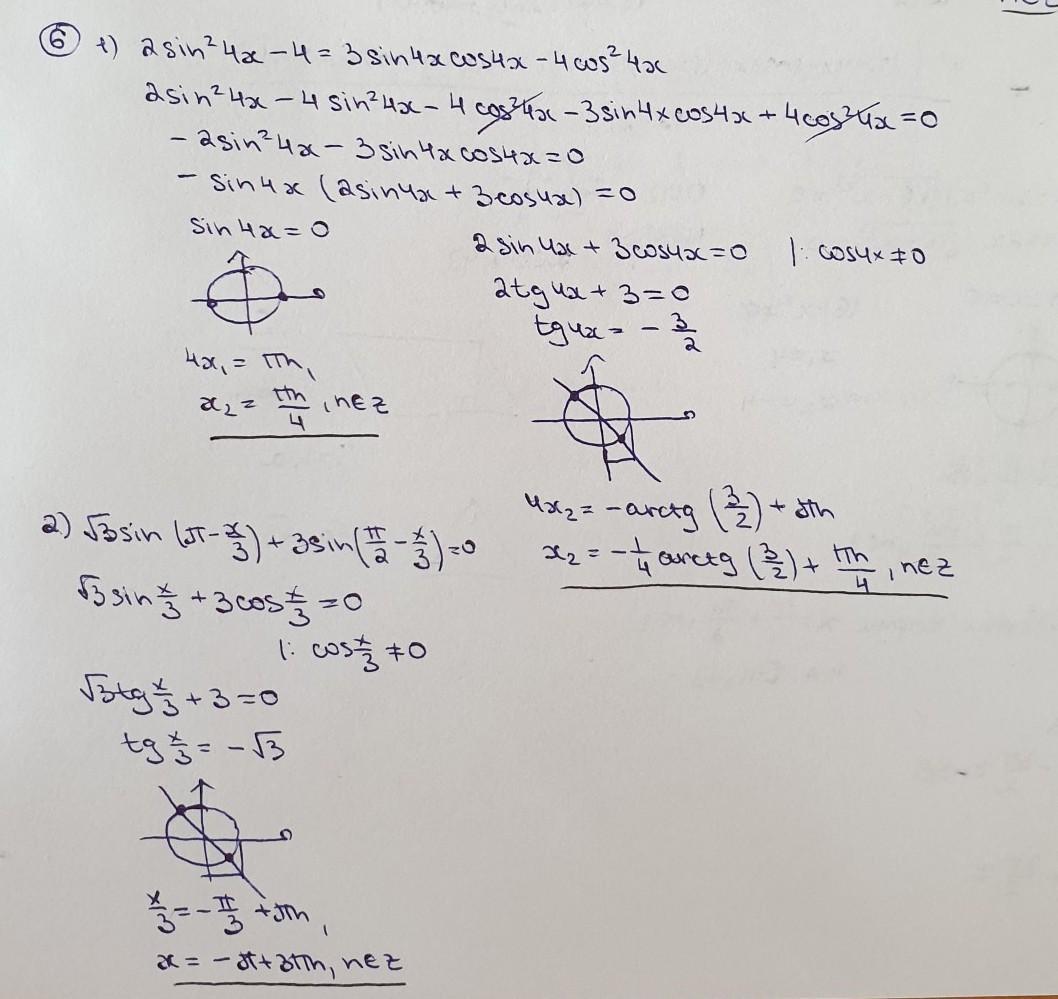 ⑥ 1) 2sin²4x - 4 = 3sin4x cos4x - 4cos²4x
2sin²4x - 4sin²4x - 4cos²4x - 3sin4x cos4x + 4cos²4x = 0
- 2sin²4x - 3sin4x cos4x = 0
- sin4x (2sin4x + 3cos4x) = 0
sin4x = 0
2sin4x + 3cos4x = 0 |: cos4x ≠ 0
2tg4x + 3 = 0
tg4x = - 3/2
4x₁ = πn,
x₂ = πn/4, n∈Z
4x₂ = - arctg (3/2) + πn
x₂ = - 1/4 arctg (3/2) + πn/4, n∈Z
2) √3 sin (π - x/3) + 3sin(π/2 - x/3) = 0
√3 sin x/3 + 3cos x/3 = 0
|: cos x/3 ≠ 0
√3 tg x/3 + 3 = 0
tg x/3 = - √3
x/3 = - π/3 + πn,
x = - π + 3πn, n∈Z